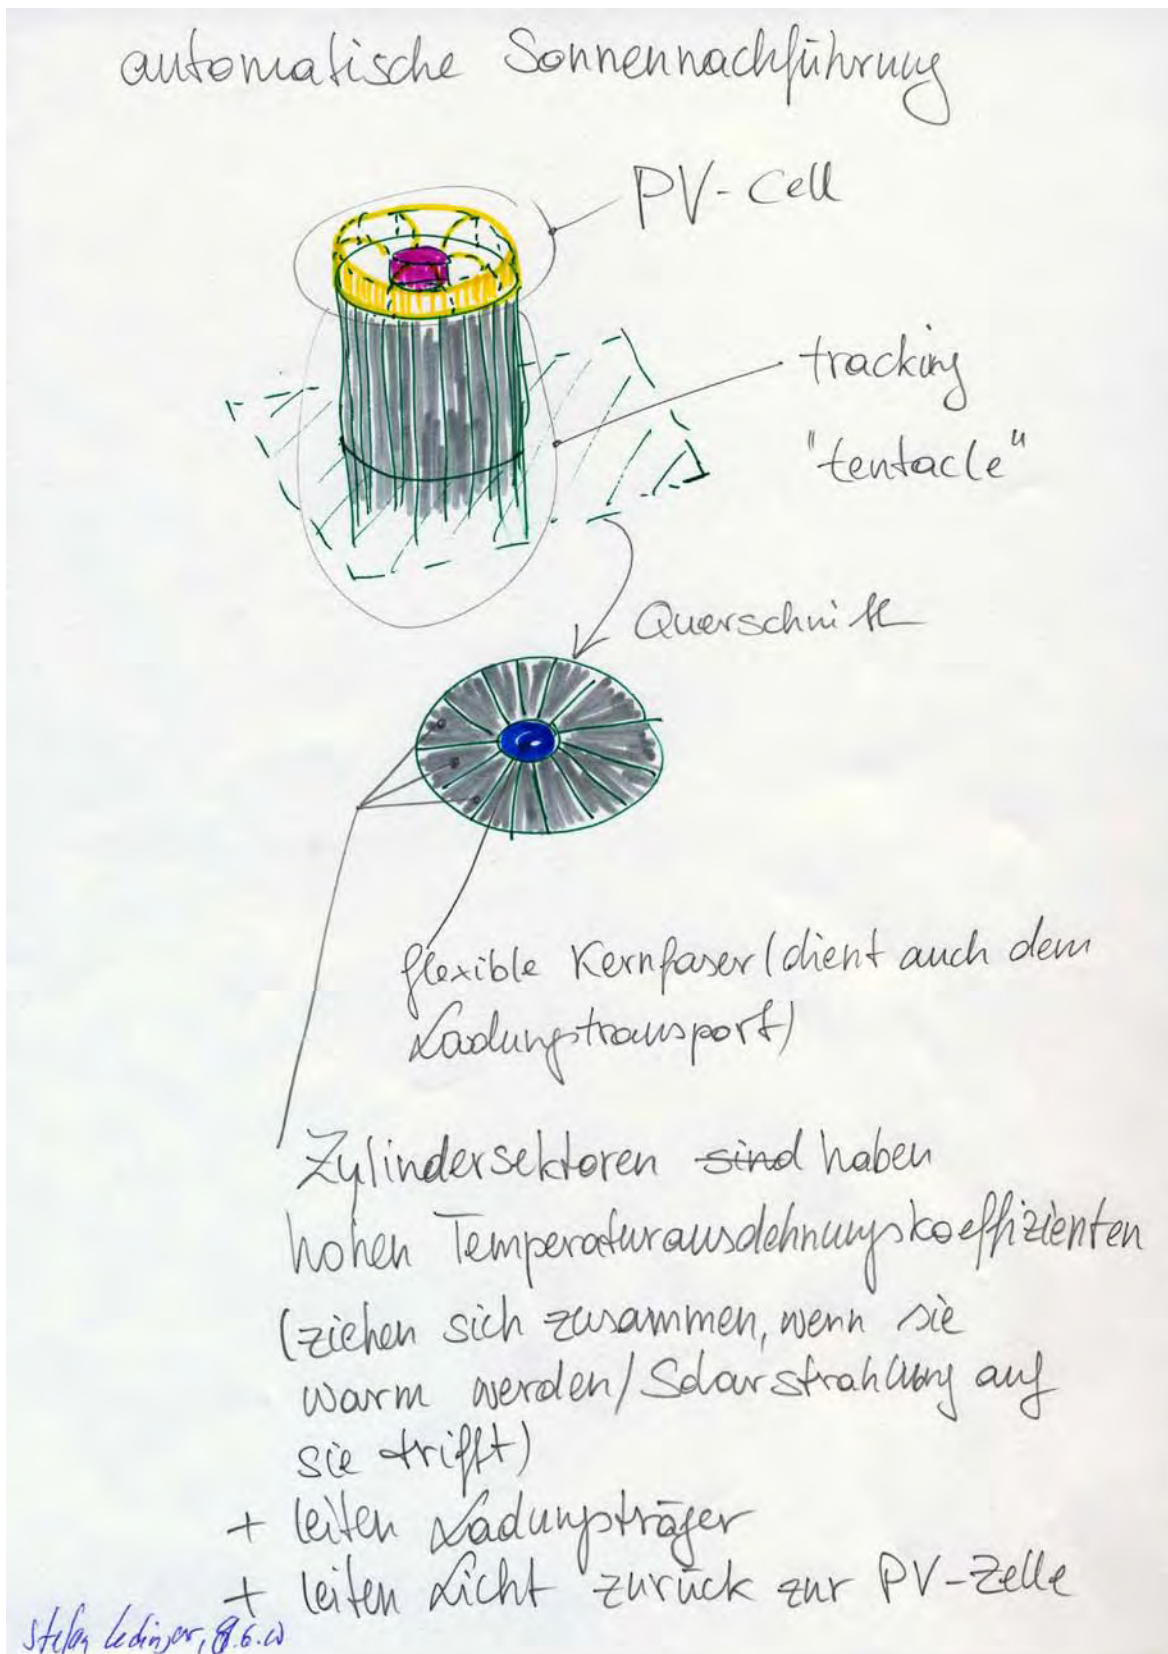 automatische Sonnennachführung
PV-Cell
tracking
"tentacle"
Querschnitt
flexible Kernfaser (dient auch dem
Ladungstransport)
Zylindersektoren sind haben
hohen Temperaturausdehnungskoeffizienten
(ziehen sich zusammen, wenn sie
warm werden/Solarstrahlung auf
sie trifft)
+ leiten Ladungsträger
+ leiten Licht zurück zur PV-Zelle
Stefan